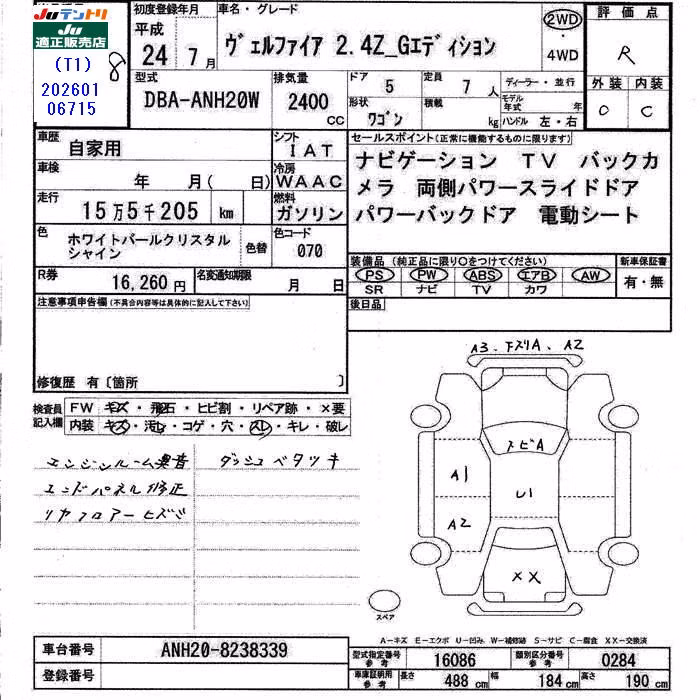 Juテントリ
Ju
適正販売店
(T1)
202601
06715
8
初度登録年月
平成
24 7月
車名・グレード
ヴェルファイア 2.4Z_Gエディション
2WD
・
4WD
評価点
R
外装 内装
O C
型式
DBA-ANH20W
排気量
2400
CC
ドア
5
形状
ワゴン
定員
7人
積載
kg
ディーラー・並行
モデル年式 年
ハンドル 左・右
車歴
自家用
シフト
IAT
車検
年 月( 日)
冷房
WAAC
走行
15万5千205 km
燃料
ガソリン
色
ホワイトパールクリスタル
シャイン
色替
色コード
070
R券
16,260円
名変通知期限
月 日
セールスポイント(正常に機能するものに限ります)
ナビゲーション TV バックカ
メラ 両側パワースライドドア
パワーバックドア 電動シート
装備品(純正品に限り○をつけてください)
PS PW ABS エアB AW
SR ナビ TV カワ
新車保証書
有・無
後日品
注意事項申告欄(不具合内容等は具体的に記入して下さい)
修復歴 有〔箇所 〕
検査員
記入欄
FW キズ・飛石・ヒビ割・リペア跡・×要
内装 キズ・汚レ・コゲ・穴・スレ・キレ・破レ
エンジンルーム異音
エンドパネル修正
リヤフロアーヒズミ
ダッシュベタツキ
A3.下スリA、A2
スビA
A1
U1
A2
XX
スペア
A-キズ E-エクボ U-凹み W-補修跡 S-サビ C-腐食 XX-交換済
車台番号
ANH20-8238339
登録番号
型式指定番号
参考
16086
類別区分番号
参考
0284
車庫証明用
参考
長さ
488cm
幅
184cm
高さ
190cm